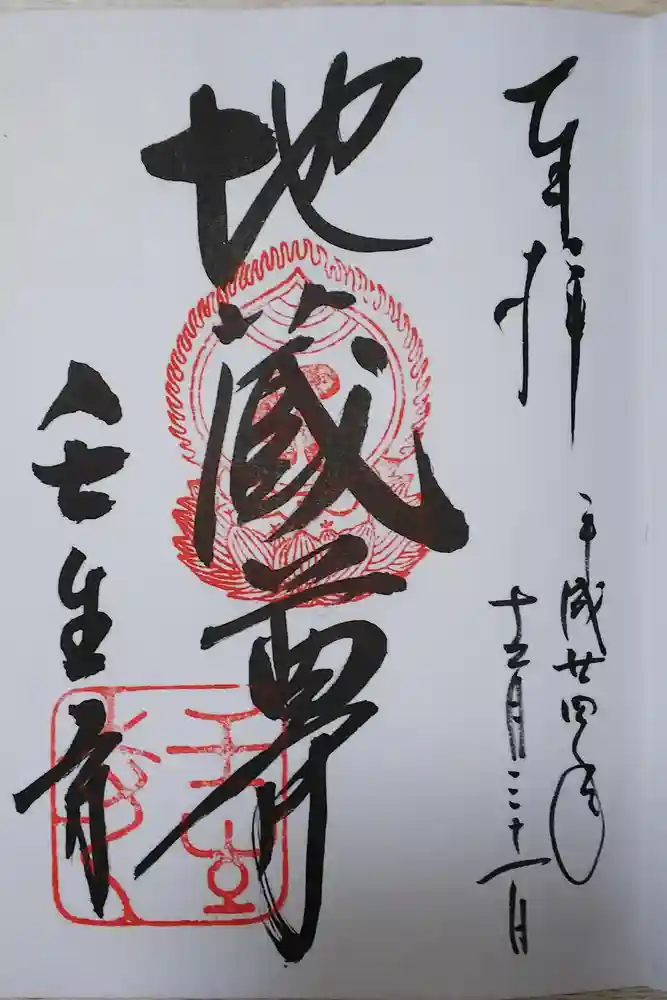 奉拝
平成廿四年
十二月三十一日
地蔵尊
壬生寺